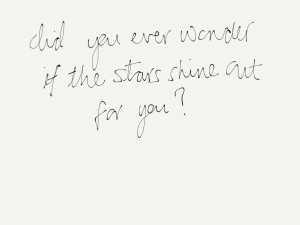 did you ever wonder
if the stars shine out
for you?